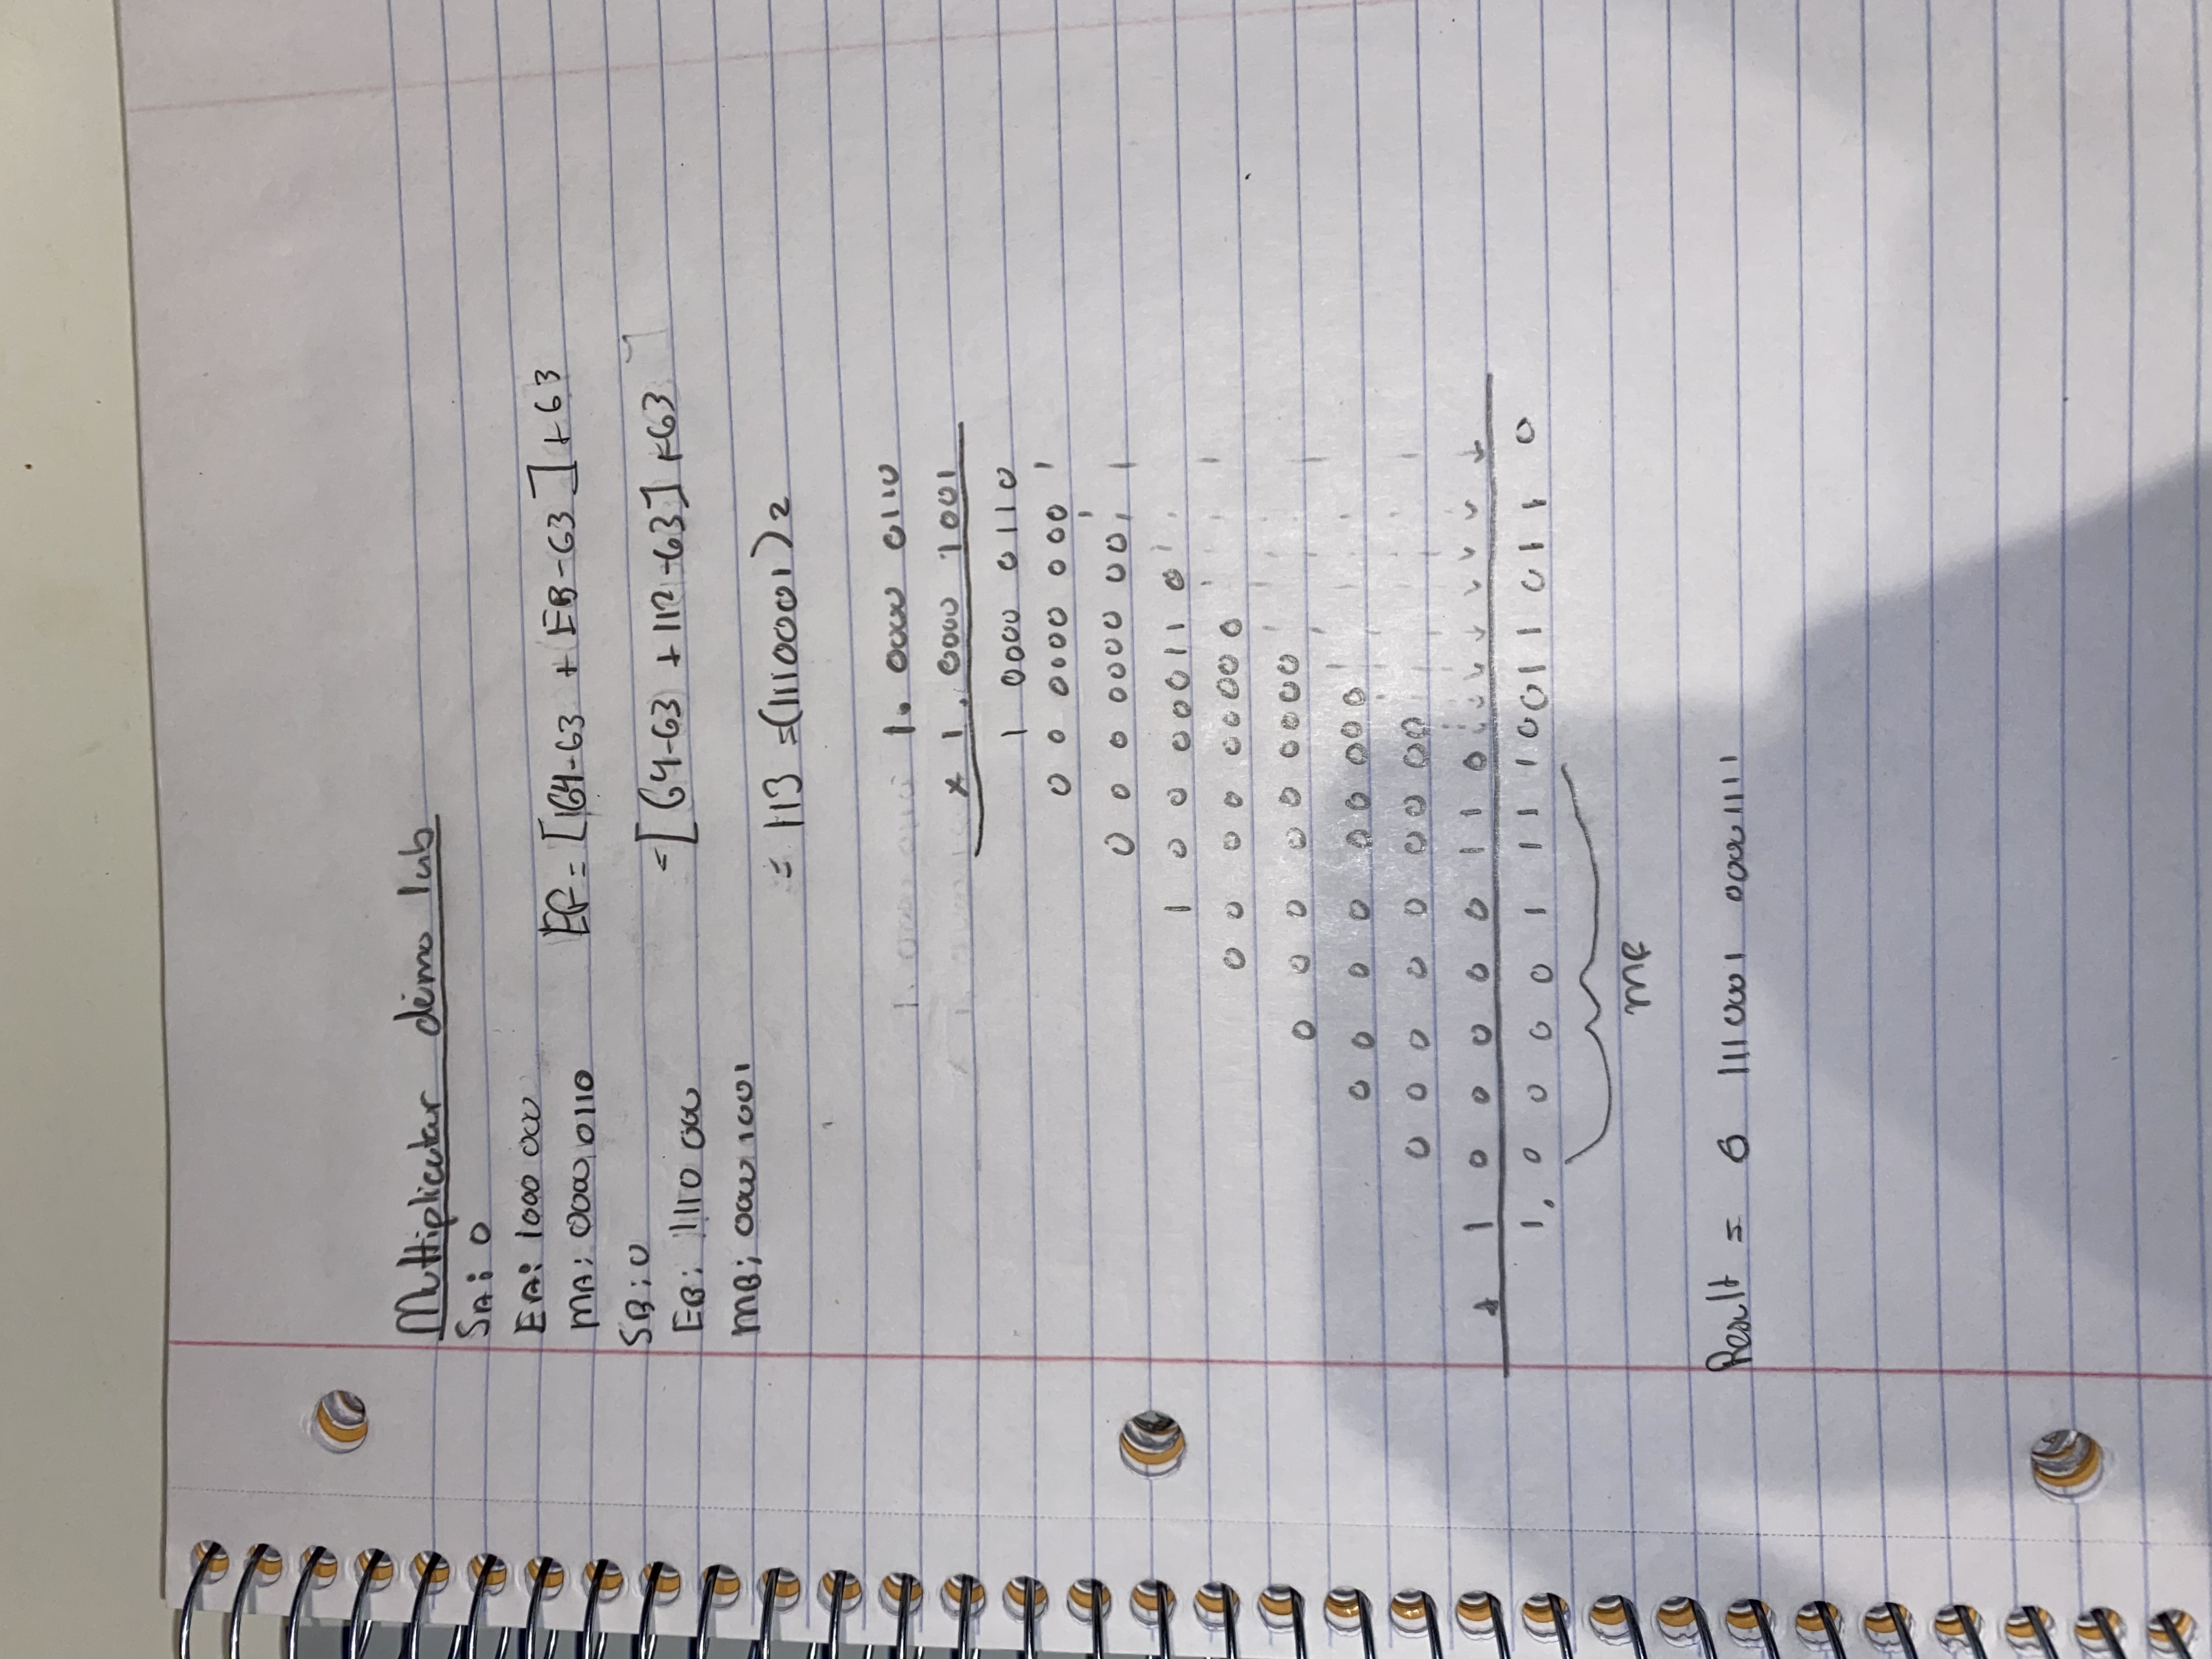 Multiplicatar demo lab
SA: 0
EA: 1000 000
MA: 0000 0110
SB: 0
EB: 1110 000
MB: 0000 1001
EF = [64-63 + EB-63] + 63
= [64-63 + 112-63] +63
= 113 = (1110001)2
1. 0000 0110
x 1. 0000 1001
1 0000 0110
0 0 0000 000
0 0 0 0000 00
1 0 0 00011 0
0 0 0 0 0000 0
0 0 0 0 0 0000
0 0 0 0 0 0 000
0 0 0 0 0 0 0 00
+ 1 0 0 0 0 0 1 1 0
1. 0 0 0 0 1 1 1 1 0 0 1 1 0 1 1 0
MF
Result = 0 1110001 00001111